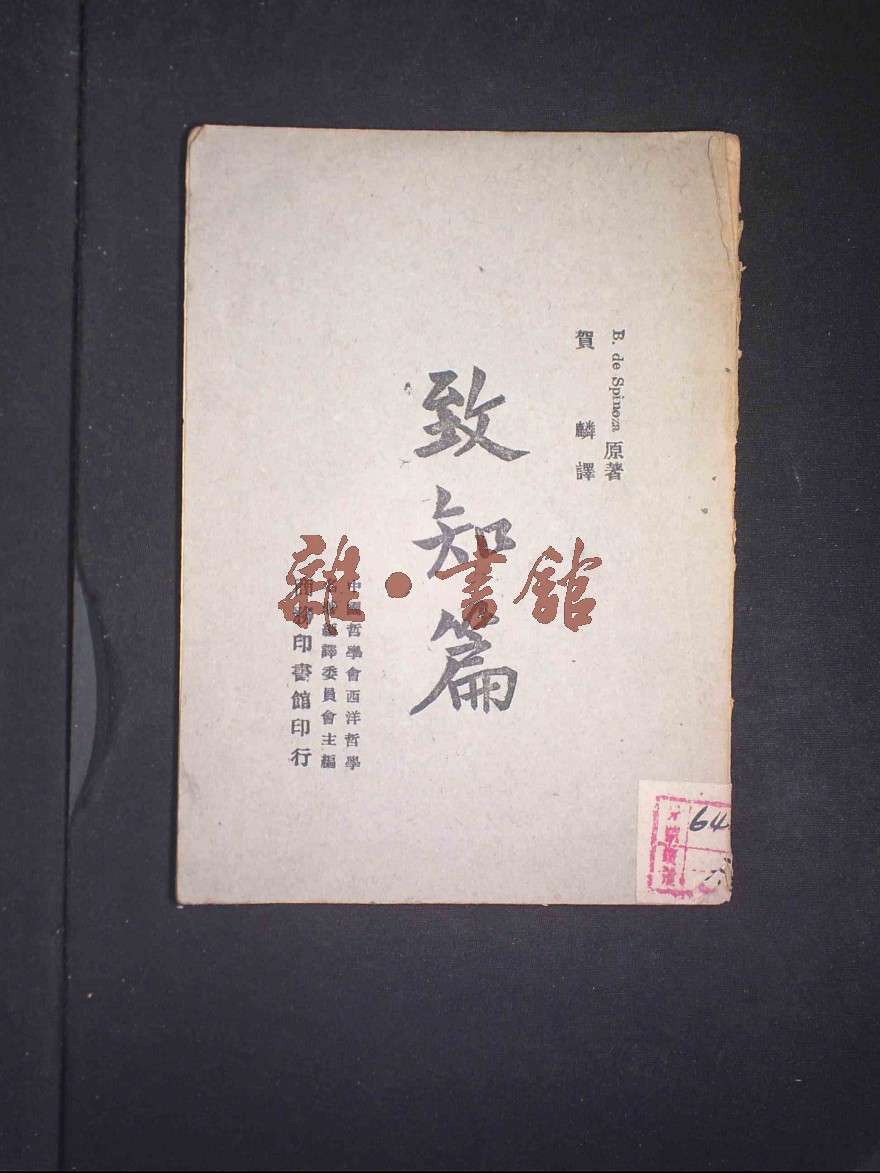 B. de Spinoza 原著
賀麟譯
致知篇
中國哲學會西洋哲學
名著編譯委員會主編
商務印書館印行
雜·書館
64